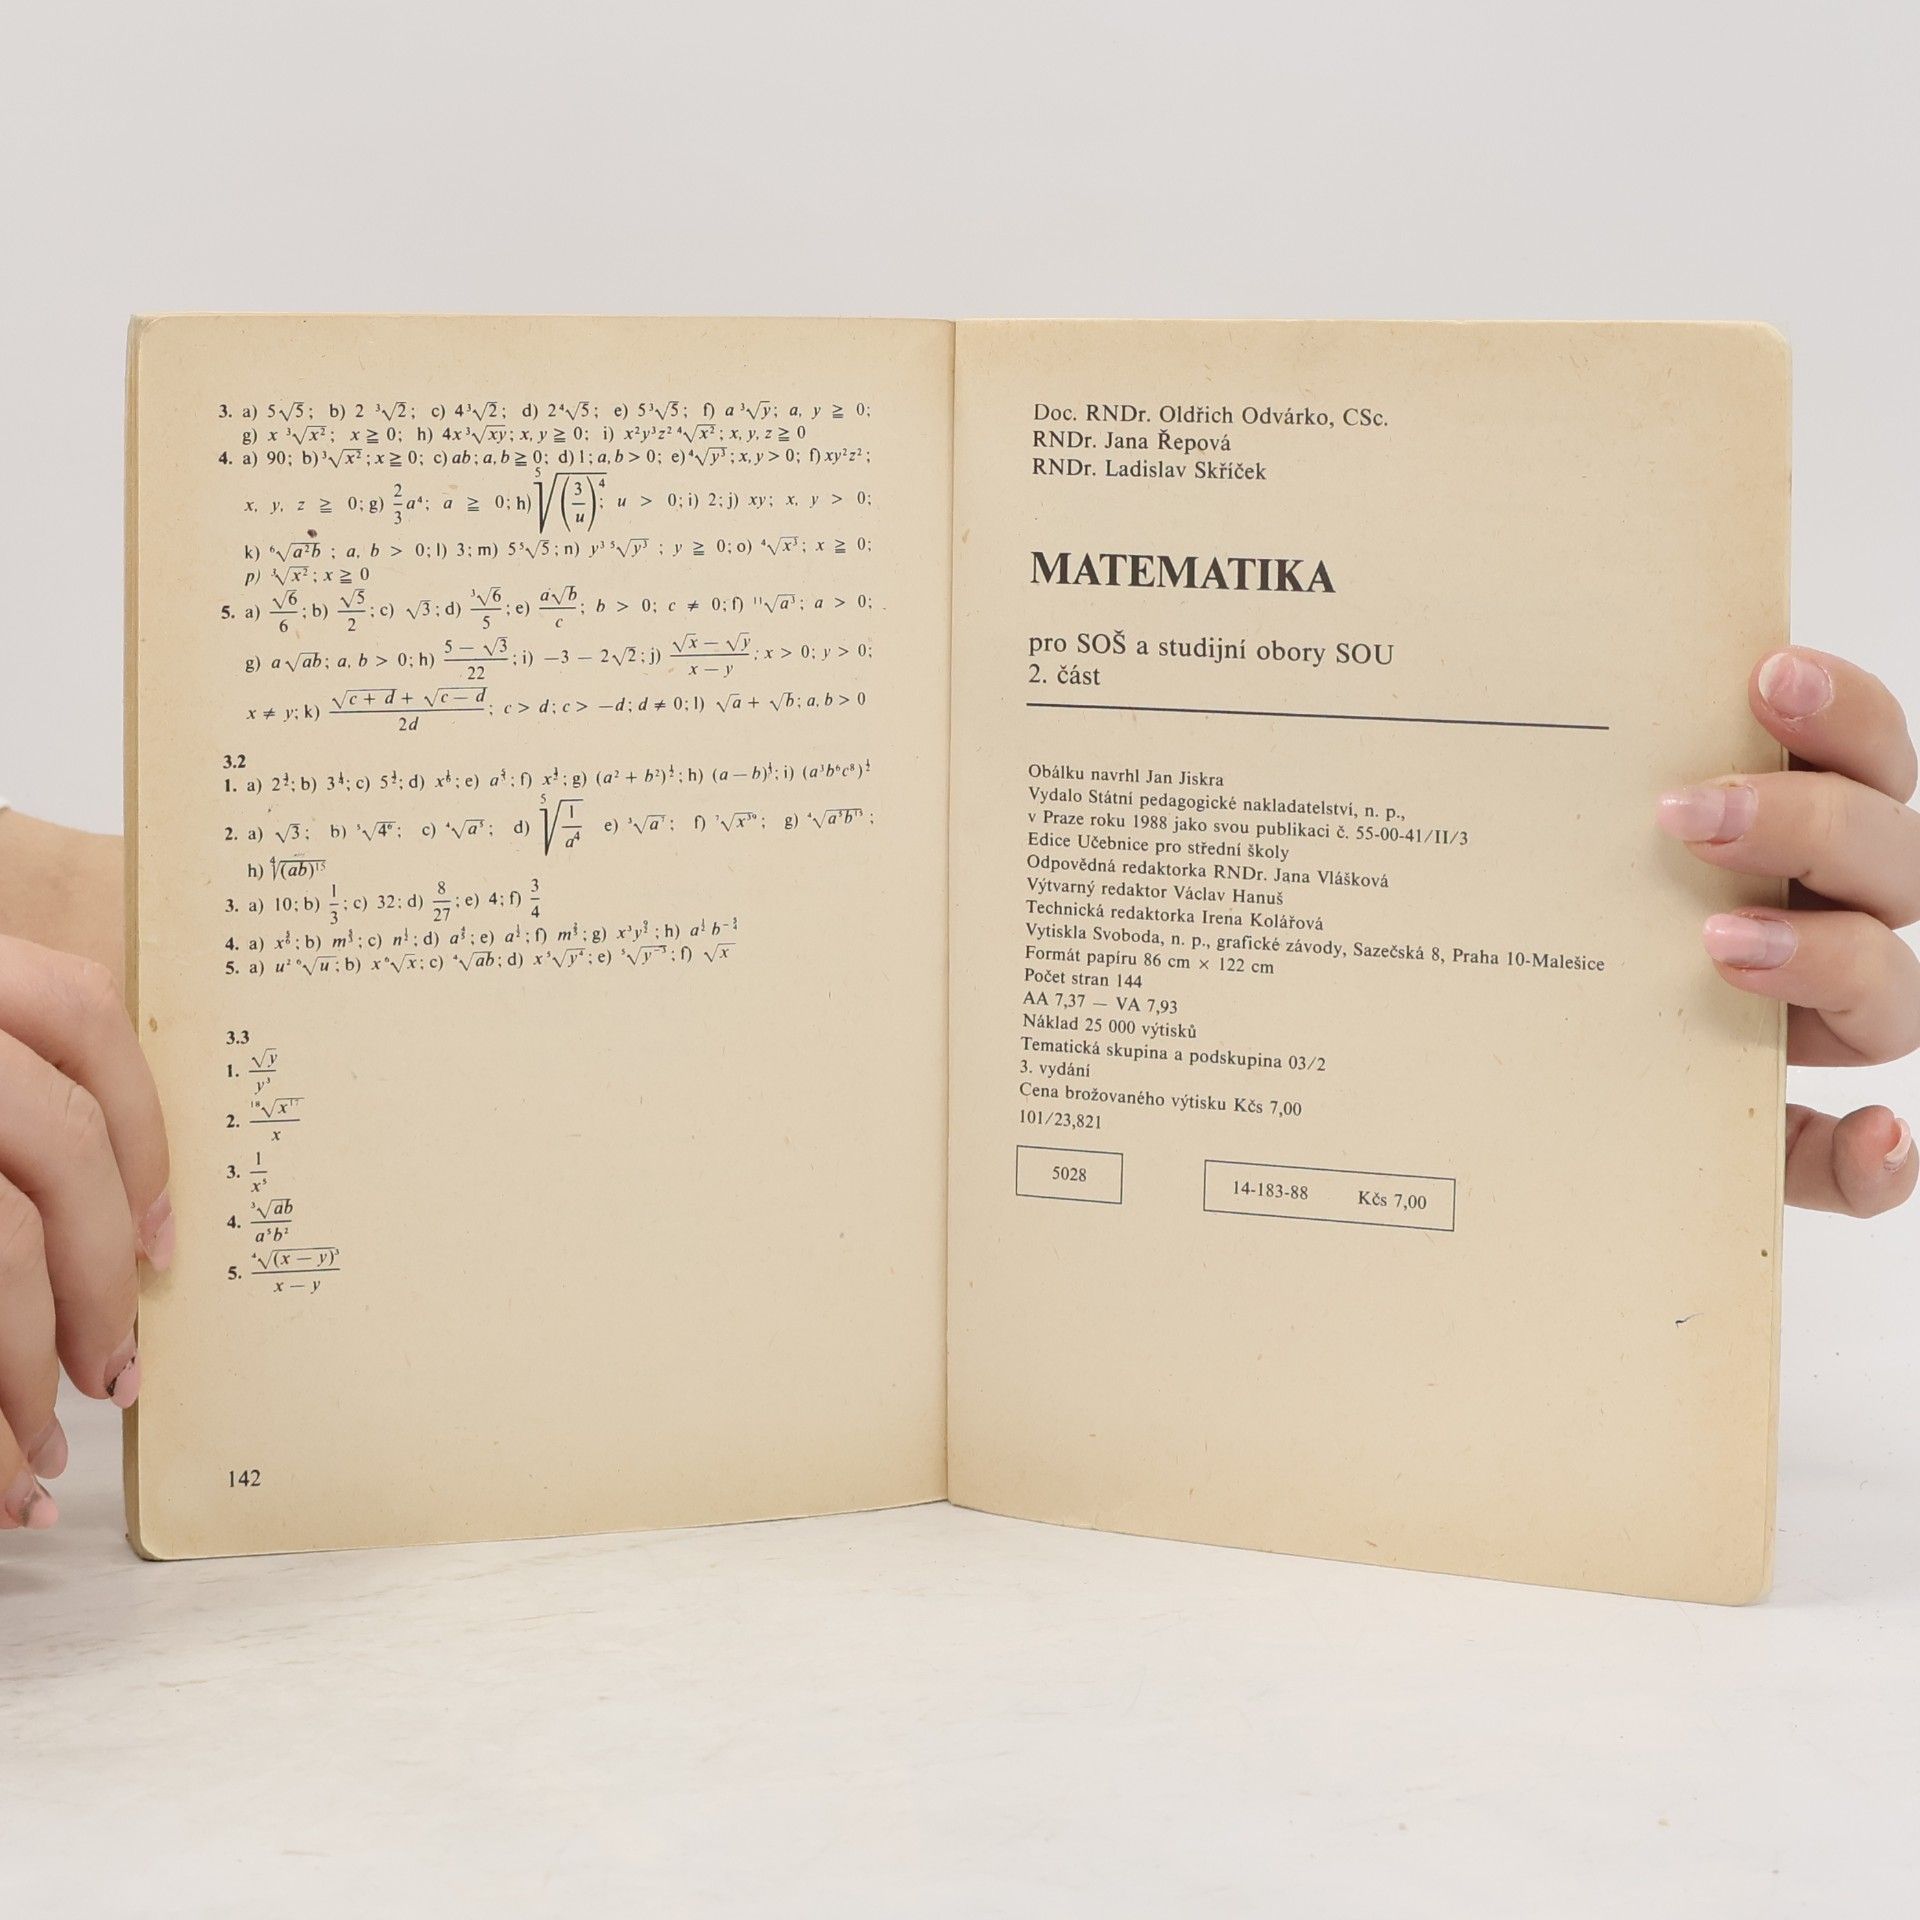 3. a) 5√5; b) 2 ³√2; c) 4³√2; d) 2⁴√5; e) 5³√5; f) a ³√y; a, y ≧ 0;
g) x ³√x²; x ≧ 0; h) 4x³√xy; x, y ≧ 0; i) x²y³z² ⁴√x²; x, y, z ≧ 0
4. a) 90; b) ³√x²; x ≧ 0; c) ab; a, b ≧ 0; d) 1; a, b > 0; e) ⁴√y³; x, y > 0; f) xy²z²;
x, y, z ≧ 0; g) 2/3 a⁴; a ≧ 0; h) ⁵√(3/u)⁴; u > 0; i) 2; j) xy; x, y > 0;
k) ⁶√a²b; a, b > 0; l) 3; m) 5⁵√5; n) y³ ⁵√y³; y ≧ 0; o) ⁴√x³; x ≧ 0;
p) ³√x²; x ≧ 0
5. a) √6/6; b) √5/2; c) √3; d) ³√6/5; e) a√b/c; b > 0; c ≠ 0; f) ¹¹√a³; a > 0;
g) a√ab; a, b > 0; h) (5 − √3)/22; i) −3 − 2√2; j) (√x − √y)/(x − y); x > 0; y > 0;
x ≠ y; k) (√(c + d) + √(c − d))/2d; c > d; c > −d; d ≠ 0; l) √a + √b; a, b > 0
3.2
1. a) b) c) d) e) f) g) (a² + b²) h) (a − b) i) (a³b⁶c⁸)
2. a) √3; b) ⁵√4⁶; c) ⁴√a⁵; d) ⁵√(1/a⁴) e) ³√a⁷; f) g)
h) ⁴√(ab)¹⁵
3. a) 10; b) 1/3; c) 32; d) 8/27; e) 4; f) 3/4
4. a) b) c) d) e) f) g) h)
5. a) u² ⁶√u; b) x⁶√x; c) ⁴√ab; d) x⁵√y⁴; e) f) √x
3.3
1. √y/y³
2. ¹⁸√x¹⁷/x
3. 1/x⁵
4. ³√ab/a⁵b²
5. ⁴√(x − y)³/(x − y)
142
Doc. RNDr. Oldřich Odvárko, CSc.
RNDr. Jana Řepová
RNDr. Ladislav Skříček
MATEMATIKA
pro SOŠ a studijní obory SOU
2. část
Obálku navrhl Jan Jiskra
Vydalo Státní pedagogické nakladatelství, n. p.,
v Praze roku 1988 jako svou publikaci č. 55-00-41/II/3
Edice Učebnice pro střední školy
Odpovědná redaktorka RNDr. Jana Vlášková
Výtvarný redaktor Václav Hanuš
Technická redaktorka Irena Kolářová
Vytiskla Svoboda, n. p., grafické závody, Sazečská 8, Praha 10-Malešice
Formát papíru 86 cm × 122 cm
Počet stran 144
AA 7,37 — VA 7,93
Náklad 25 000 výtisků
Tematická skupina a podskupina 03/2
3. vydání
Cena brožovaného výtisku Kčs 7,00
101/23,821
5028
14-183-88 Kčs 7,00